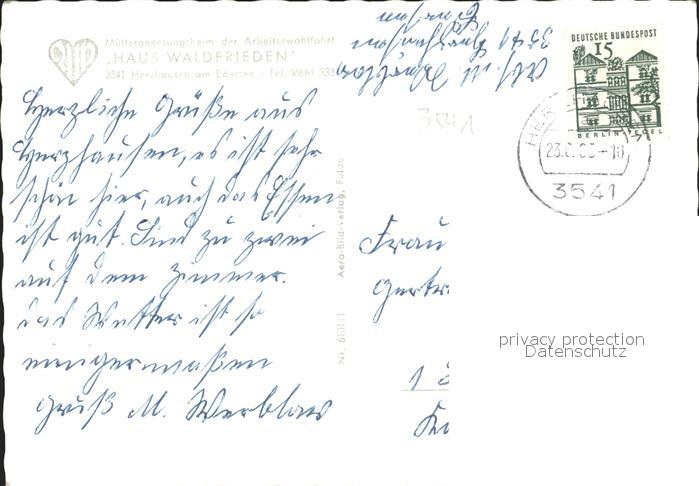 Müttergenesungsheim der Arbeiterwohlfahrt
„HAUS WALDFRIEDEN"
3541 Herzhausen am Edersee - Tel. Vöhl 333
Herzliche Grüße aus
Herzhausen, es ist sehr
schön hier, auch das Essen
ist gut. Sind zu zwei
auf dem Zimmer.
das Wetter ist so
einigermaßen
Gruß M.
3541
Herzhausen
3541
DEUTSCHE BUNDESPOST
15
BERLIN TEGEL
3541
Nr. 610111 Aero-Bild-Verlag, Fulda
Frau
Gertr
1
privacy protection
Datenschutz